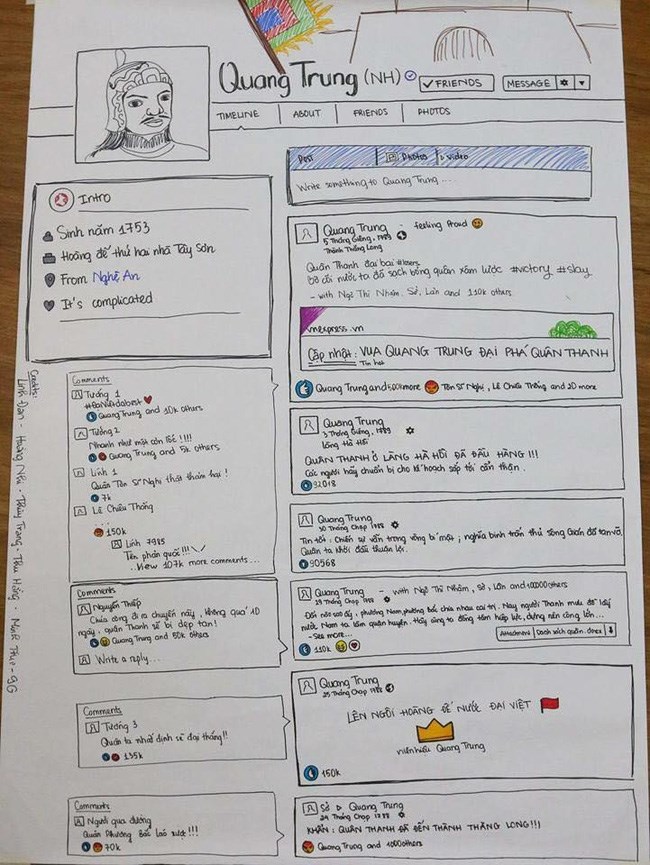 Quang Trung (NH)
✓FRIENDS
MESSAGE
TIMELINE
ABOUT
FRIENDS
PHOTOS
Intro
Sinh năm 1753
Hoàng đế thứ hai nhà Tây Sơn
From Nghệ An
It's complicated
Post
Photos
Video
Write something to Quang Trung ...
Quang Trung - feeling Proud
5 Tháng Giêng, 1789
Thành Thăng Long
Quân Thanh đại bại #losers
Bờ cõi nước ta đã sạch bóng quân xâm lược #victory #slay
- with Ngô Thì Nhậm, Sở, Lân and 110k others
vnexpress.vn
Cập nhật: VUA QUANG TRUNG ĐẠI PHÁ QUÂN THANH
Tin hot
Quang Trung and 500k more Tôn Sĩ Nghị, Lê Chiêu Thống and 20 more
Comments
Tướng 1
Quang Trung and 10k others
Tướng 2
Nhanh như một cơn lốc!!!!
Quang Trung and 5k others
Lính 1
Quân Tôn Sĩ Nghị thật thảm hại!
7k
Lê Chiêu Thống
...
150k
Lính 7985
Tên phản quốc!!!
...View 107k more comments...
Quang Trung
3 Tháng Giêng, 1789
Làng Hà Hồi
QUÂN THANH Ở LÀNG HÀ HỒI ĐÃ ĐẦU HÀNG!!!
Các ngươi hãy chuẩn bị cho kế hoạch sắp tới cẩn thận.
92018
Quang Trung
30 Tháng Chạp 1788
Tin tốt: Chiến sự vẫn trong vòng bí mật; nghĩa binh trấn thủ sông Gián đã tan vỡ.
Quân ta khởi đầu thuận lợi.
90568
Comments
Nguyễn Thiếp
Chúa công đi ra chuyến này, không quá 10
ngày, quân Thanh sẽ bị dẹp tan!
Quang Trung and 50k others
Write a reply...
Quang Trung - with Ngô Thì Nhậm, Sở, Lân and 100000 others
29 Tháng Chạp 1788
phương Nam, phương Bắc chia nhau cai trị. Nay người Thanh mưu đồ lấy
nước Nam ta làm quận huyện. Hãy cùng ta đồng tâm hiệp lực, dựng nên công lớn...
- See more...
Attachment Danh sách quân .docx
110k
Comments
Tướng 3
Quân ta nhất định sẽ đại thắng!!
135k
Quang Trung
25 Tháng Chạp 1788
LÊN NGÔI HOÀNG ĐẾ NƯỚC ĐẠI VIỆT
niên hiệu Quang Trung
150k
Comments
Người qua đường
Quân Phương Bắc láo xược!!!
70k
Sở ▷ Quang Trung
24 Tháng Chạp 1788
KHẨN: QUÂN THANH ĐÃ ĐẾN THÀNH THĂNG LONG!!!
Quang Trung and 1000 others
Credits:
Linh Đan - Hoàng Nhi - Thùy Trang - Thu Hồng -